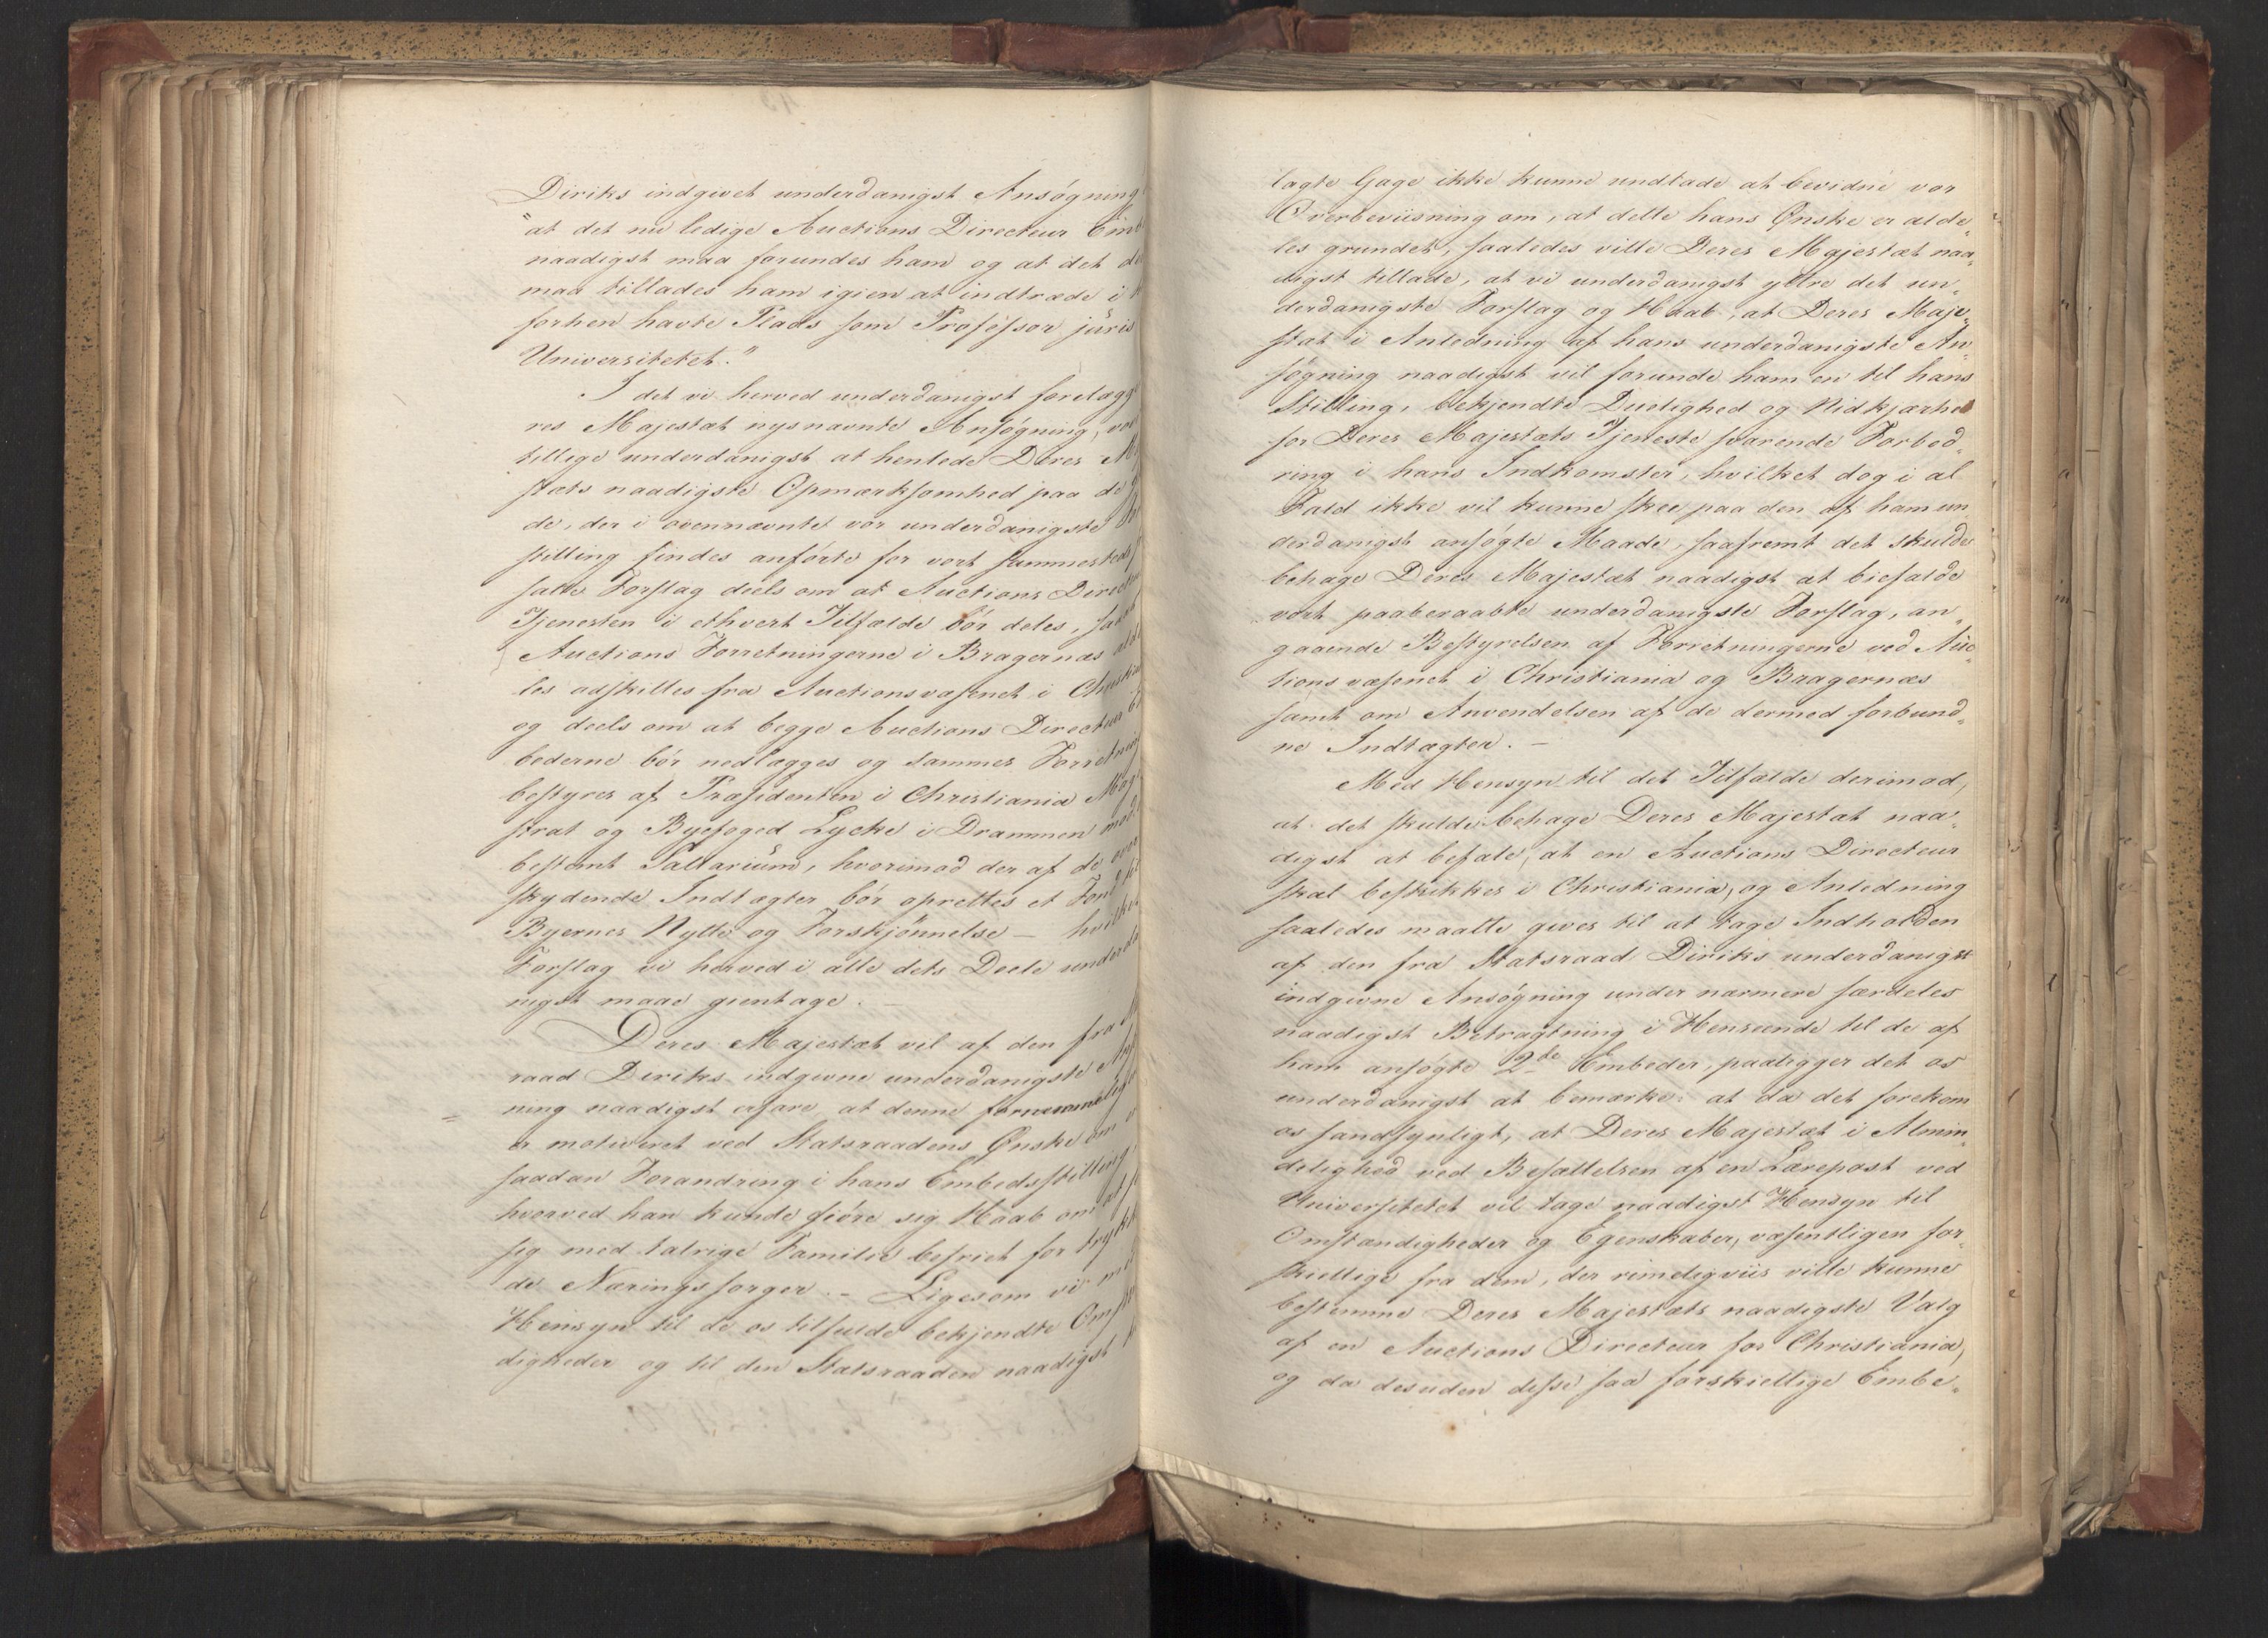 Diriks indgivet underdanigst Ansøgning
"at det nu ledige Auctions Directeur Emb
naadigst maa forundes ham og at det
maa tillades ham igien at indtræde i
forhen havte Plads som Professor juris
Universitetet."
I det vi herved underdanigst forelægge
res Majestæt nysnævnte Ansøgning,
tillige underdanigst at henlede Deres
stæts naadigste Opmærksomhed paa de
de, der i ovennævnte vor underdanigste
stilling findes anførte for vort sammesteds
satte Forslag deels om at Auctions Direct
Tjenesten i ethvert Tilfælde bør deles, saa
Auctions Forretningerne i Bragernæs alde
les adskilles fra Auctionsvæsenet i Christia
og deels om at begge Auctions Directeur
bederne bør nedlægges og sammes Forretning
bestyres af Præsidenten i Christiania Mag
strat og Byefoged Lycke i Drammen mod
bestemt Sallarium, hvorimod der af de over
skydende Indtægter bør oprettes et Fond til
Byernes Nytte og Forskjønnelse – hvilket
Forslag vi herved i alle dets Deele underda
nigst maae gientage. –
Deres Majestæt vil af den fra
raad Diriks indgivne underdanigste Ansø
ning naadigst erfare at denne fornemmelig
er motiveret ved Statsraadens Ønske om
saadan Forandring i hans Embedsstilling,
hvorved han kunde giøre sig Haab om at
sig med talrige Familie befriet for trykk
de Næringssorger. – Ligesom vi
Hensyn til de os tilfulde bekjendte Omstæ
digheder og til den Statsraaden naadigst
lagte Gage ikke kunne undlade at bevidne vor
Overbeviisning om, at dette hans Ønske er alde„
les grundet, saaledes ville Deres Majestæt naa„
digst tillade, at vi underdanigst yttre det un„
derdanigste Forslag og Haab, at Deres Maje„
stæt i Anledning af hans underdanigste An„
søgning naadigst vil forunde ham en til hans
Stilling, bekjendte Duelighed og Nidkjærhed
for Deres Majestæts Tjeneste svarende Forbed„
ring i hans Indkomster, hvilket dog i al
Fald ikke vil kunne skee paa den af ham un„
derdanigst ansøgte Maade, saafremt det skulde
behage Deres Majestæt naadigst at biefalde
vort paaberaabte underdanigste Forslag, an„
gaaende Bestyrelsen af Forretningerne ved Auc„
tionsvæsenet i Christiania og Bragernæs
samt om Anvendelsen af de dermed forbund„
ne Indtægter. –
Med Hensyn til det Tilfælde derimod,
at det skulde behage Deres Majestæt naa„
digst at befale, at en Auctions Directeur
skal beskikkes i Christiania, og Anledning
saaledes maatte gives til at tage Indholden
af den fra Statsraad Diriks underdanigst
indgivne Ansøgning under nærmere særdeles
naadigst Betragtning i Henseende til de af
ham ansøgte 2de Embeder, paaligger det os
underdanigst at bemærke: at da det forekom
os sandsynligt, at Deres Majestæt i Almin„
delighed ved Besættelsen af en Lærepost ved
Universitetet vil tage naadigst Hensyn til
Omstændigheder og Egenskaber, væsentligen for„
skiellige fra dem, der rimeligviis ville kunne
bestemme Deres Majestæts naadigste Valg
af en Auctions Directeur for Christiania,
og da desuden disse saa forskiellige Embe„